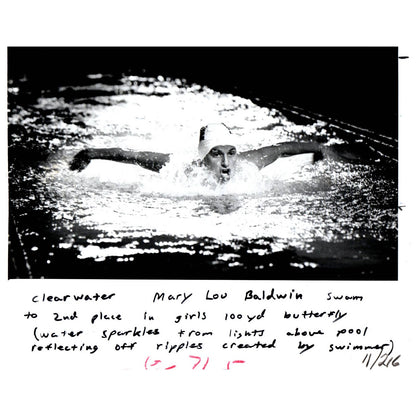 clearwater Mary Lou Baldwin swam
to 2nd place in girls 100 yd butterfly
(water sparkles from lights above pool
reflecting off ripples created by swimmer)
11/26